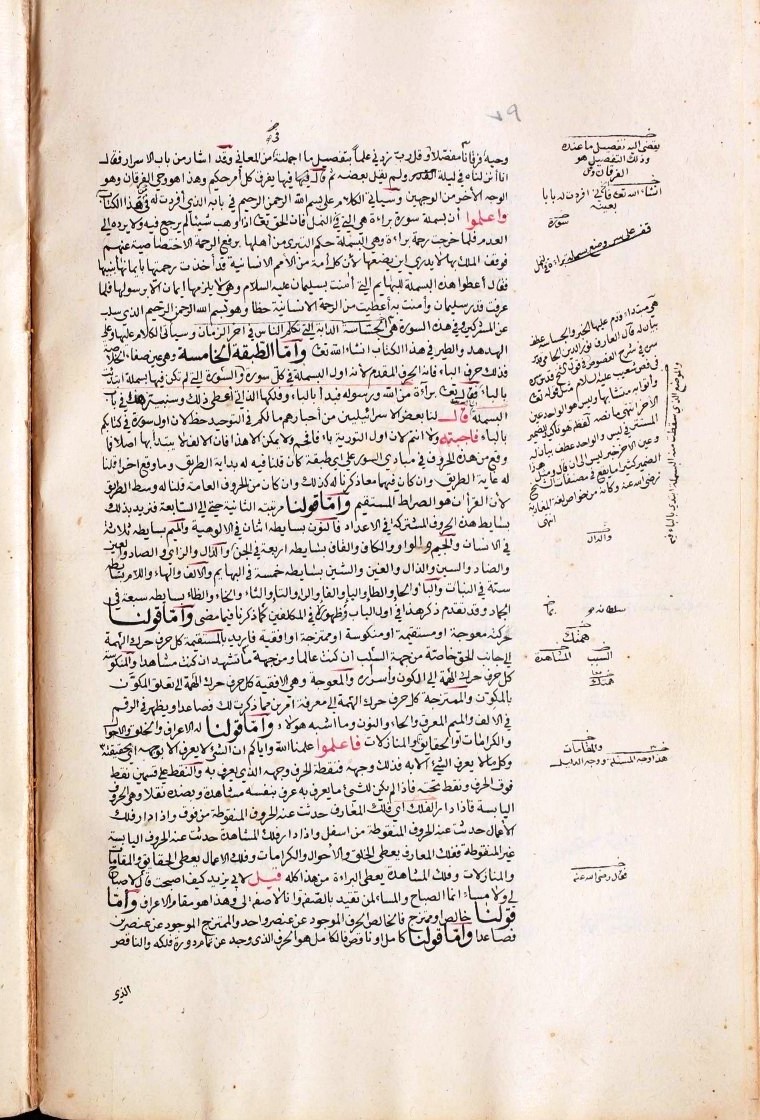 ٧٩
وحيه فرقانا مفصلا وقل رب زدني علما بتفصيل ما اجملته من المعاني وقد اشار من باب الاسرار فقال
انا أنزلناه في ليلة القدر ولم يقل بعضه ثم قال فيها فيها يفرق كل أمر حكيم وهذا هو وحي الفرقان وهو
الوجه الآخر من الوجهين وسيأتي الكلام على بسم الله الرحمن الرحيم في بابه الذي أفردت له في هذا الكتاب
واعلموا أن بسملة سورة براءة هي التي في النمل فان الحق تعالى اذا وهب شيئا لم يرجع فيه ولا يرده إلى
العدم فلما خرجت رحمة براءة وهي البسملة حكم التبري من أهلها برفع الرحمة الاختصاصية عنهم
فوقف الملك بها لا يدري اين يضعها لأن كل أمة من الأمم الانسانية قد أخذت رحمتها بايمانها بنبيها
فقال أعطوا هذه البسملة للبهايم التي آمنت بسليمان عليه السلام وهي لا يلزمها ايمان الا برسولها فلما
عرفت قدر سليمان وآمنت به أعطيت من الرحمة الانسانية حظا وهو بسم الله الرحمن الرحيم الذي سلب
عن المشركين وفي هذه السورة هي الجساسة الدابة التي تكلم الناس في آخر الزمان وسيأتي الكلام عليها وعلى
الهدهد والطير في هذا الكتاب انشاء الله تعالى وأما الطبقة الخامسة وهي عين صفاء الخلاصة
فذلك حرف الباء فانه الحرف المقدم لأنه أول البسملة في كل سورة والسورة التي لم تكن فيها بسملة ابتدئت
بالباء فقال تعالى براءة من الله ورسوله فبدأ بالباء
البسملة قال لنا بعض الاسرائيليين من أحبارهم ما لكم في التوحيد حظ لان اول سورة في كتابكم
بالباء فأجبته ولا انتم لان اول التورية باء فافحم ولا يمكن الا هذا فان الالف لا يبتدأ بها اصلا فما
وقع من هذه الحروف في مبادي السور على أي طبقة كان قلنا فيه له بداية الطريق وما وقع اخرا قلنا
له غاية الطريق وان كان فيما معا ذكرنا له كذلك وان كان من الحروف العامة قلنا له وسط الطريق
لأن القرآن هو الصراط المستقيم وأما قولنا مرتبته الثانية حتى إلى السابعة فنريد بذلك
بسايط هذه الحروف المشتركة في الاعداد فالنون بسايطه اثنان في الالوهية والميم بسايطه ثلاثة
في الانسان والجيم والواو والكاف والقاف بسايطه اربعة في الجن والدال والزاي والصاد والعين
والضاد والسين والذال والغين والشين بسايطه خمسة في البهايم والالف والهاء واللام بسايطه
ستة في النبات والباء والحاء والطاء والياء والفاء والراء والتاء والثاء والخاء والظاء بسايطه سبعة في
الجماد وقد تقدم ذكر هذا في اول الباب وظهوره في المكلفين كما ذكرنا فيما مضى وأما قولنا
حركته معوجة او مستقيمة او منكوسة او ممتزجة او افقية فاريد بالمستقيمة كل حرف حرك الهمة
إلى جانب الحق خاصة من جهة السلب ان كنت عالما ومن جهة ما تشهد ان كنت مشاهدا والمنكوسة
كل حرف حرك الهمة إلى الكون وأسراره والمعوجة وهي الافقية كل حرف حرك الهمة إلى تعلق المكون
بالمكون والممتزجة كل حرف حرك الهمة إلى معرفة امرين مما ذكرت لك فصاعدا ويظهر في الرقم
في الالف والميم المعرق والحاء والنون وما اشبه هؤلاء وأما قولنا له الاعراف والخلق والاحوال
والكرامات او الحقايق والمنازلات فاعلموا علمنا الله واياكم ان الشئ لا يعرف الا بوجهه اي بحقيقته
وكل ما لا يعرف الشئ الا به فذلك وجهه فنقطة الحرف وجهه الذي يعرف به والنقط على قسمين نقط
فوق الحرف ونقط تحته فاذا لم يكن للشئ ما يعرف به عرف بنفسه مشاهدة وبضده نقلا وهي الحروف
اليابسة فاذا دار الفلك اي فلك المعارف حدثت عنه الحروف المنقوطة من فوق واذا دار فلك
الأعمال حدثت عنه الحروف المنقوطة من اسفل واذا دار فلك المشاهدة حدثت عنه الحروف اليابسة
غير المنقوطة ففلك المعارف يعطي الخلق والأحوال والكرامات وفلك الاعمال يعطي الحقايق والمقامات
والمنازلات وفلك المشاهدة يعطي البراءة من هذا كله قيل لابي يزيد كيف اصبحت قال لا صباح
لي ولا مساء انما الصباح والمساء لمن تقيد بالصفة وانا لا صفة لي وهذا هو مقام الاعراف وأما
قولنا خالص او ممتزج فالخالص الحرف الموجود عن عنصر واحد والممتزج الموجود عن عنصرين
فصاعدا وأما قولنا كامل او ناقص فالكامل هو الحرف الذي وجد عن تمام دورة فلكه والناقص
الذي
يفضي اليه تفصيل ما عندك
وذلك التفصيل هو
الفرقان
انشاء الله تعالى
بعينه
سورة
قف على سر وضع بسملة براءة في النمل
والدال
سلطانه
همتك
السبب المشاهدة
همتك
والمقامات
هذا وجه المسئلة ووجه الدليل
فقال رضي الله عنه